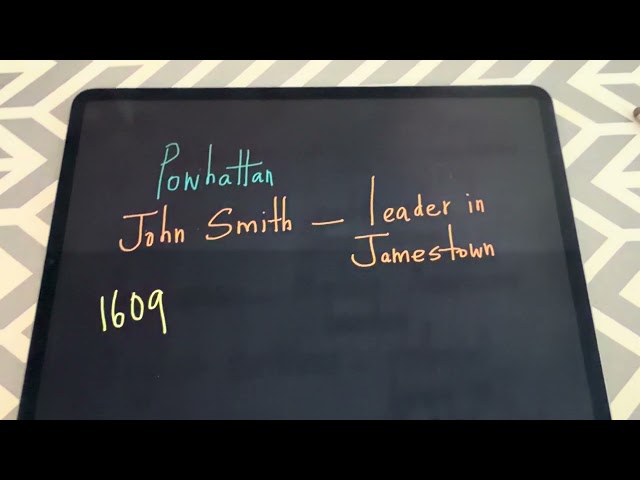 Powhattan
John Smith — leader in
Jamestown
1609